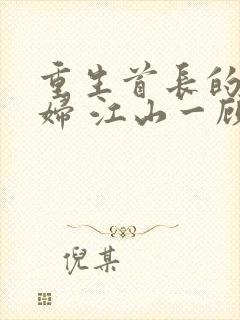 重生首長的
婦 江山一顧
倪某